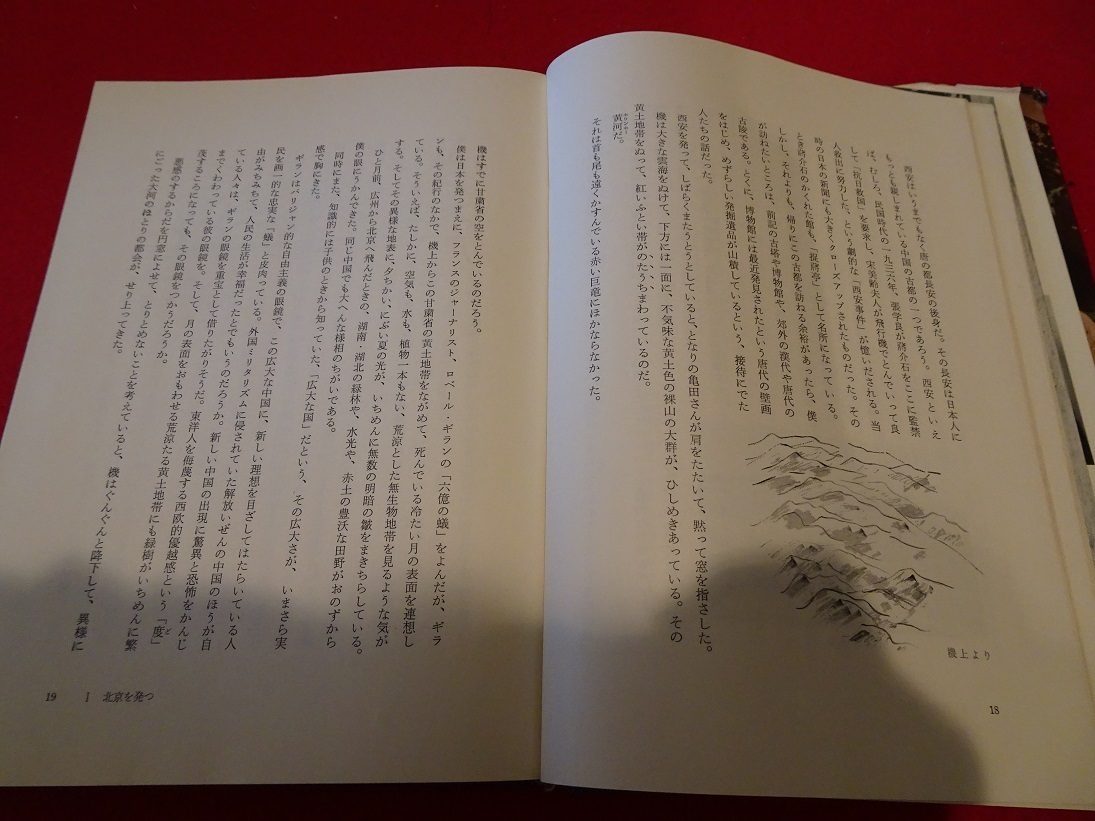 西安はいうまでもなく唐の都長安の後身だ。その長安は日本人に
もっとも親しまれている中国の古都の一つであろう。西安といえ
ば、むしろ、民国時代の一九三六年、張学良が蔣介石をここに監禁
して「抗日救国」を要求し、宋美齢夫人が飛行機でとんでいって良
人救出に努力した、という劇的な「西安事件」が憶いだされる。当
時の日本の新聞にも大きくクローズアップされたものだった。その
とき蔣介石のかくれた館も、「捉蔣亭」として名所になっている。
しかし、それよりも、帰りにこの古都を訪ねる余裕があったら、僕
が訪ねたいところは、前記の古塔や博物館や、郊外の漢代や唐代の
古陵である。とくに、博物館には最近発見されたという唐代の壁画
をはじめ、めずらしい発掘遺品が山積しているという、接待にでた
人たちの話だった。
西安を発って、しばらくまたうとうとしていると、となりの亀田さんが肩をたたいて、黙って窓を指さした。
機は大きな雲海をぬけて、下方には一面に、不気味な黄土色の裸山の大群が、ひしめきあっている。その
黄土地帯をぬって、紅いぶとい帯がのたうちまわっているのだ。
黄河だ。
それは首も尾も遠くかすんでいる赤い巨竜にほかならなかった。
機上より
18
機はすでに甘粛省の空をとんでいるのだろう。
僕は日本を発つまえに、フランスのジャーナリスト、ロベール・ギランの「六億の蟻」をよんだが、ギラ
ンも、その紀行のなかで、機上からこの甘粛省の黄土地帯をながめて、死んでいる冷たい月の表面を連想し
ている。そういえば、たしかに、空気も、水も、植物一本もない、荒涼とした無生物地帯を見るような気が
する。そしてその異様な地表に、夕ちかい、にぶい夏の光が、いちめんに無数の明暗の皺をまきちらしている。
ひと月前、広州から北京へ飛んだときの、湖南・湖北の緑林や、水光や、赤土の豊沃な田野がおのずから
僕の眼にうかんできた。同じ中国でも大へんな様相のちがいである。
同時にまた、知識的には子供のときから知っていた、「広大な国」だという、その広大さが、いまさら実
感で胸にきた。
ギランはパリジャン的な自由主義の眼鏡で、この広大な中国に、新しい理想を目ざしてはたらいている人
民を画一的な忠実な「蟻」と皮肉っている。外国ミリタリズムに侵されていた解放いぜんの中国のほうが自
由がみちみちて、人民の生活が幸福だったとでもいうのだろうか。新しい中国の出現に驚異と恐怖をかんじ
ている人々は、ギランの眼鏡を重宝として借りたがりそうだ。東洋人を侮蔑する西欧的優越感という「度」
までくわわっている彼の眼鏡を。そして、月の表面をおもわせる荒涼たる黄土地帯にも緑樹がいちめんに繁
茂するころになっても、その眼鏡をつかうだろうか。
悪感のするからだを円窓によせて、とりとめないことを考えていると、機はぐんぐんと降下して、異様に
にごった大河のほとりの都会が、せり上ってきた。
19 Ⅰ 北京を発つ